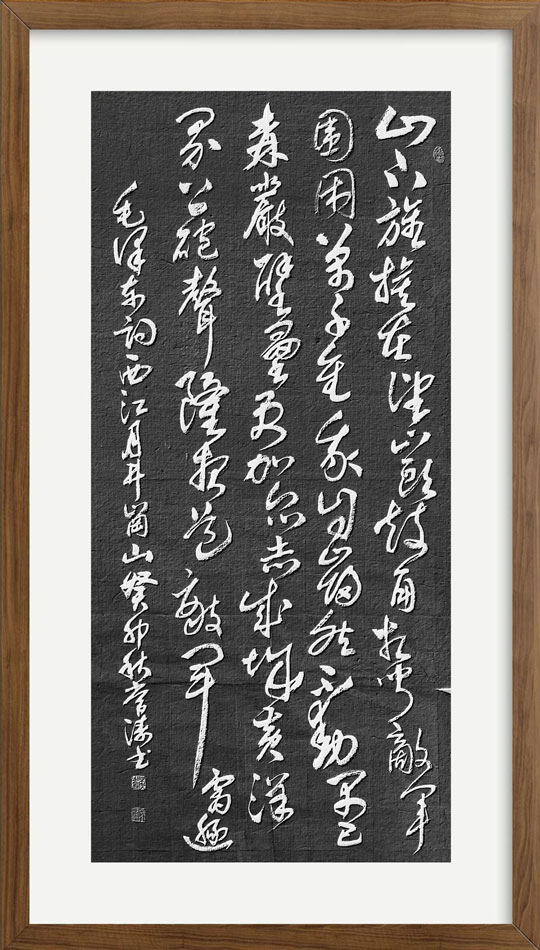 山下旌旗在望山頭鼓角相闻敵军
围困萬千重我自巋然不動早已
森嚴壁壘更加众志成城黄洋
界上砲聲隆報道敵军宵遁
毛泽东词西江月井崗山癸卯秋涛书